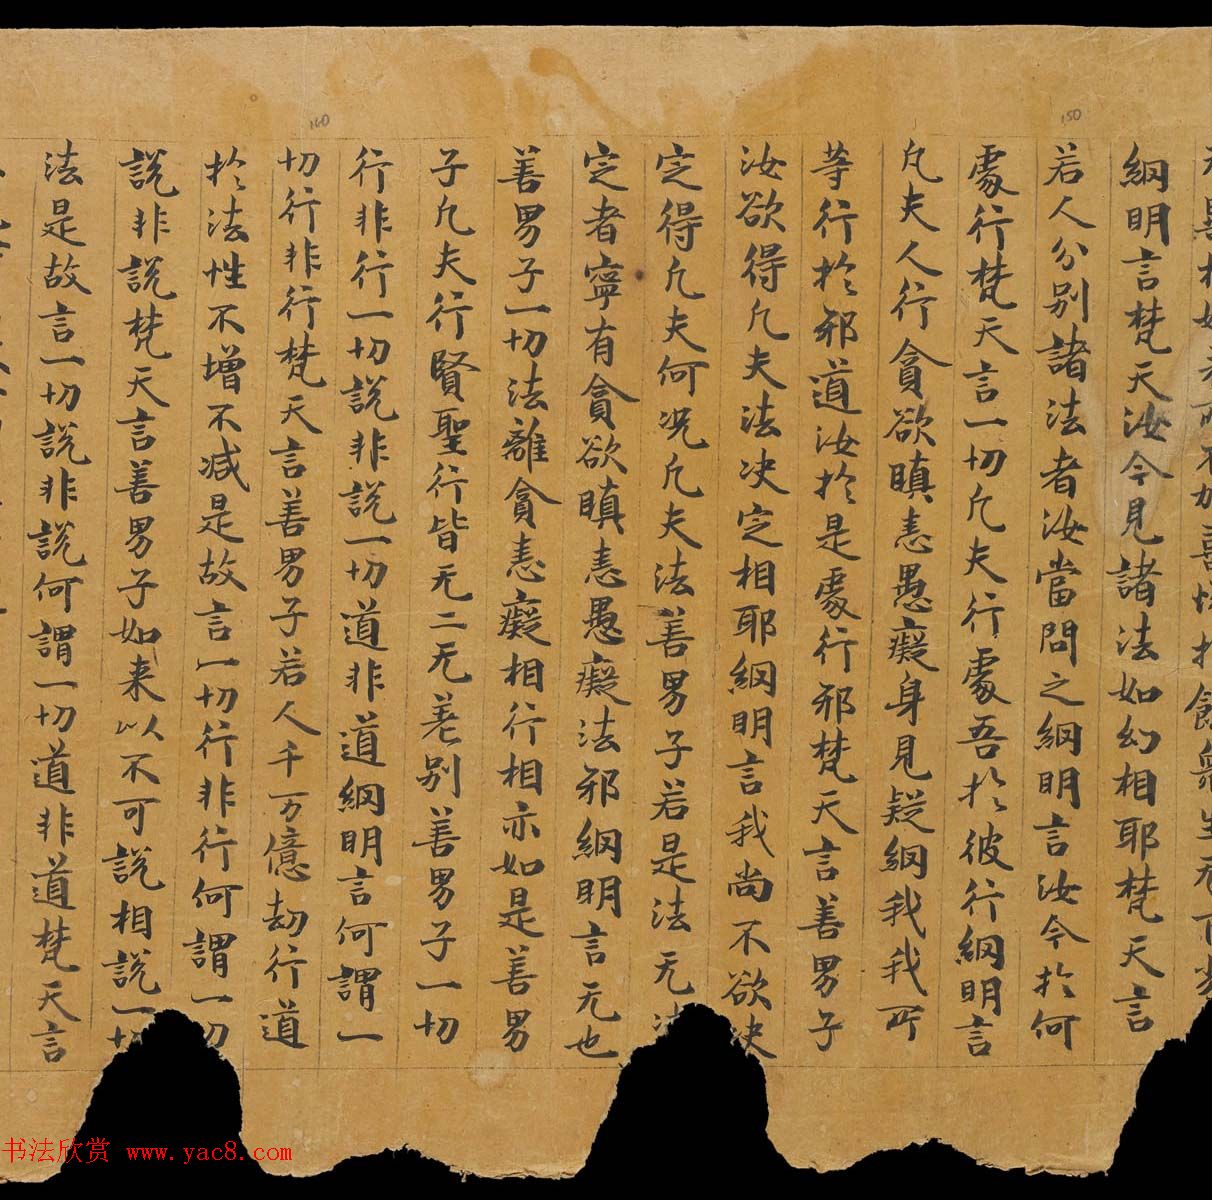 綱明言梵天汝今見諸法如幻相耶梵天言
若人分别諸法者汝當問之綱明言汝今於何
處行梵天言一切凡夫行處吾於彼行綱明言
凡夫人行貪欲瞋恚愚癡身見疑網我我所
等行於邪道汝於是處行邪梵天言善男子
汝欲得凡夫法决定相耶綱明言我尚不欲决
定得凡夫何况凡夫法善男子若是法无决
定者寧有貪欲瞋恚愚癡法邪綱明言无也
善男子一切法離貪恚癡相行相亦如是善男
子凡夫行賢聖行皆无二无差别善男子一切
行非行一切說非說一切道非道綱明言何謂一
切行非行梵天言善男子若人千万億劫行道
於法性不增不减是故言一切行非行何謂一切
說非說梵天言善男子如来以不可說相說一切
法是故言一切說非說何謂一切道非道梵天言
150
160
书法欣赏 www.yac8.com